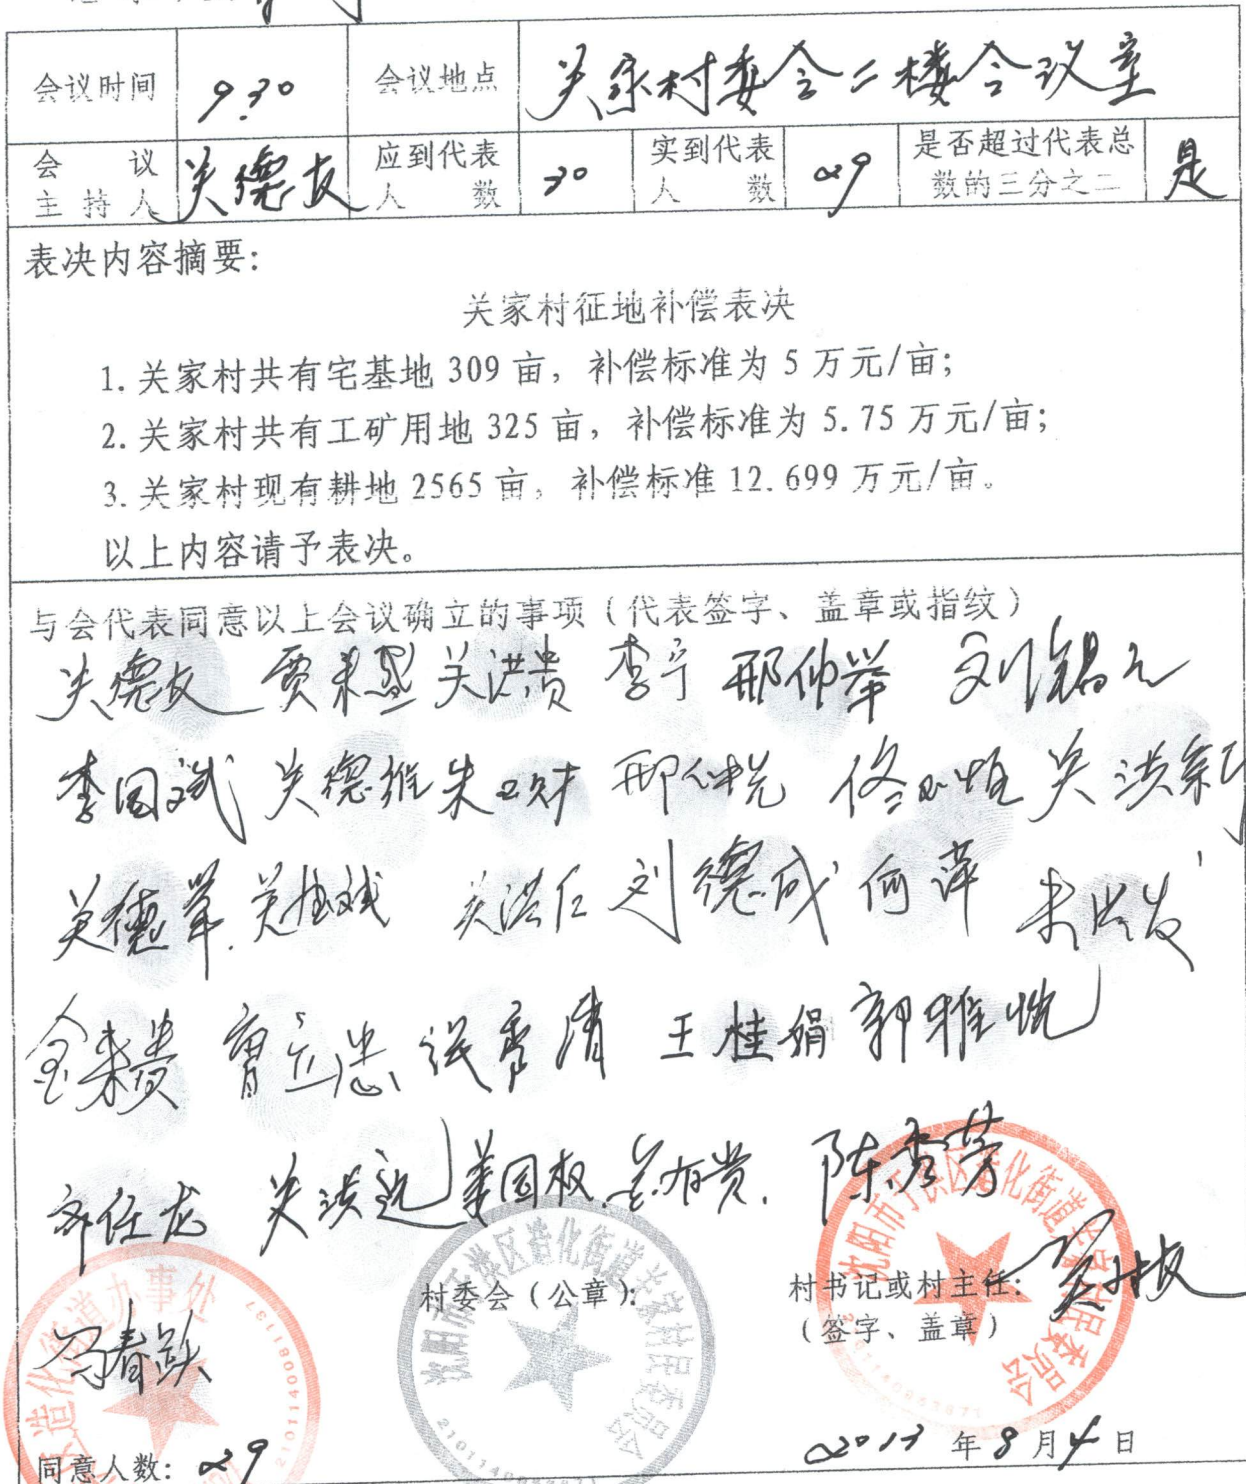 会议时间 9:30 会议地点 关家村委会二楼会议室
会议主持人 关德友 应到代表人数 30 实到代表人数 29 是否超过代表总数的三分之二 是
表决内容摘要:
关家村征地补偿表决
1. 关家村共有宅基地 309 亩，补偿标准为 5 万元/亩；
2. 关家村共有工矿用地 325 亩，补偿标准为 5.75 万元/亩；
3. 关家村现有耕地 2565 亩，补偿标准 12.699 万元/亩。
以上内容请予表决。
与会代表同意以上会议确立的事项（代表签字、盖章或指纹）
关德友 贾来盛 关洪贵 李宁 邢仲举 刘锡久
李国斌 关德维 邢仲悦 关洪新
关德举 关洪仁 刘德成 何萍 朱兴发
金来贵 曹立忠 王桂娟 郭雅悦
齐任龙 关洪远 姜国权 陈秀芳
村委会（公章）：
村书记或村主任：
（签字、盖章）
冯春跃
沈阳市于洪区造化街道关家村民委员会
沈阳市于洪区造化街道关家村民委员会
造化街道办事处
同意人数：29
2013 年 8 月 4 日